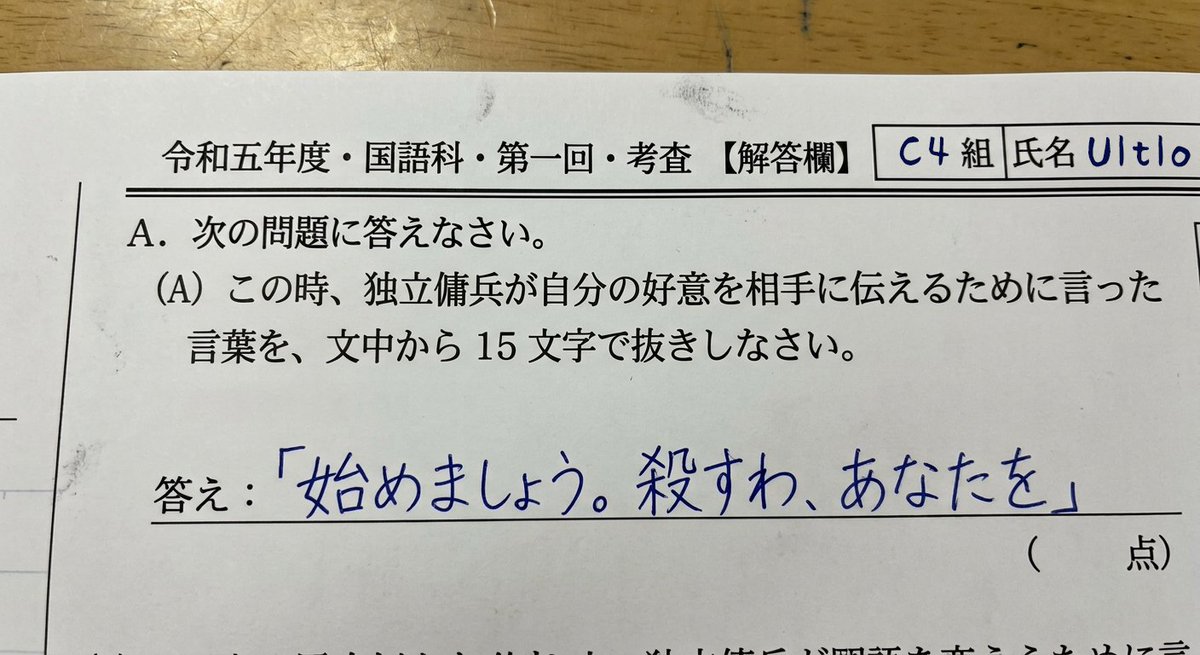 令和五年度・国語科・第一回・考査【解答欄】 C4 組 氏名 Ultlo
A．次の問題に答えなさい。
（A）この時、独立傭兵が自分の好意を相手に伝えるために言った
言葉を、文中から 15 文字で抜きしなさい。
答え：「始めましょう。殺すわ、あなたを」
（　　点）
独立傭兵が
ために言